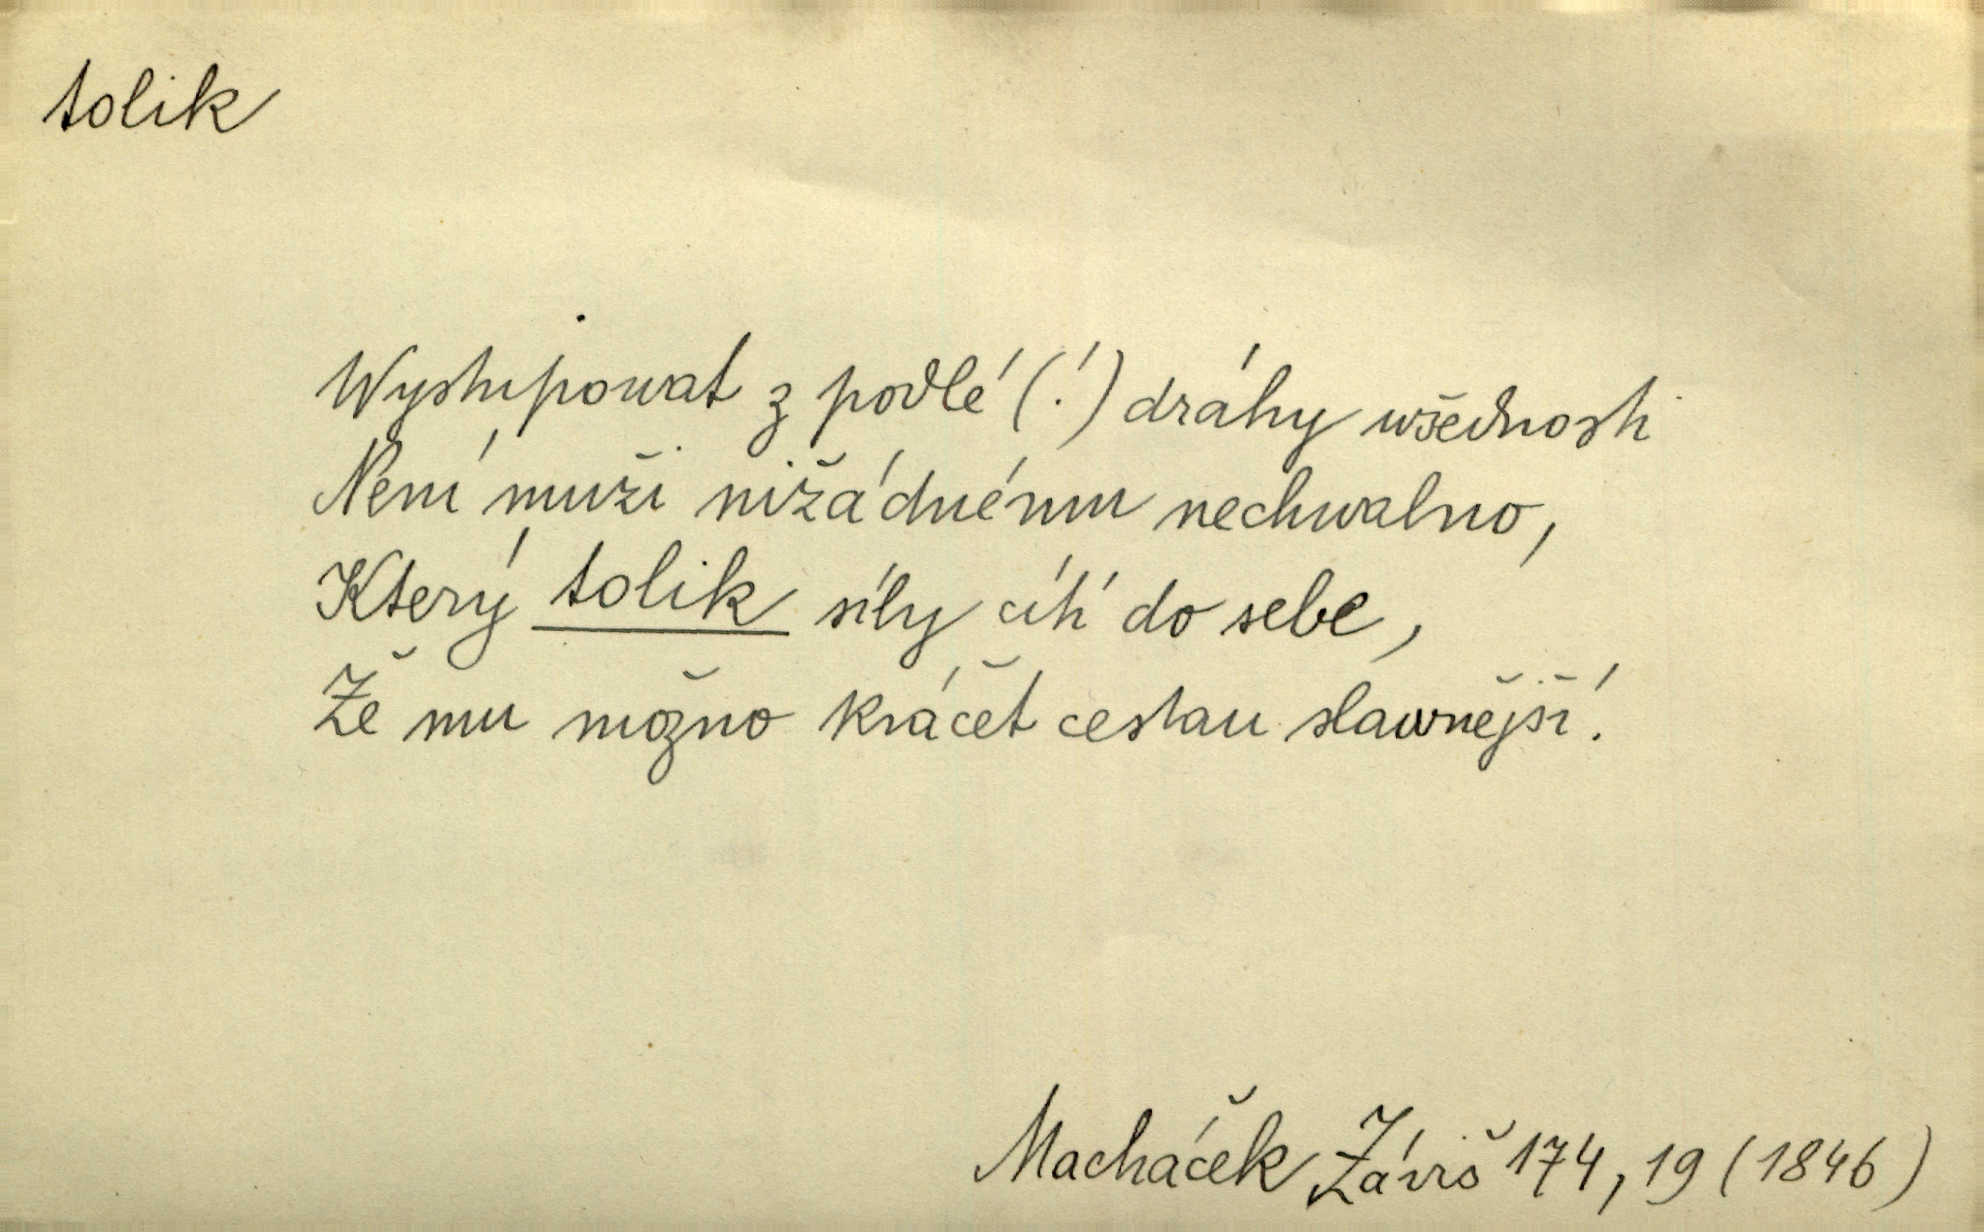 tolik
Wystupowat z podlé (!) dráhy wšednosti
Není muži nižádnému nechwalno,
Který tolik síly cítí do sebe,
Že mu možno kráčet cestau slawnější.
Macháček, Záviš 174, 19 (1846)